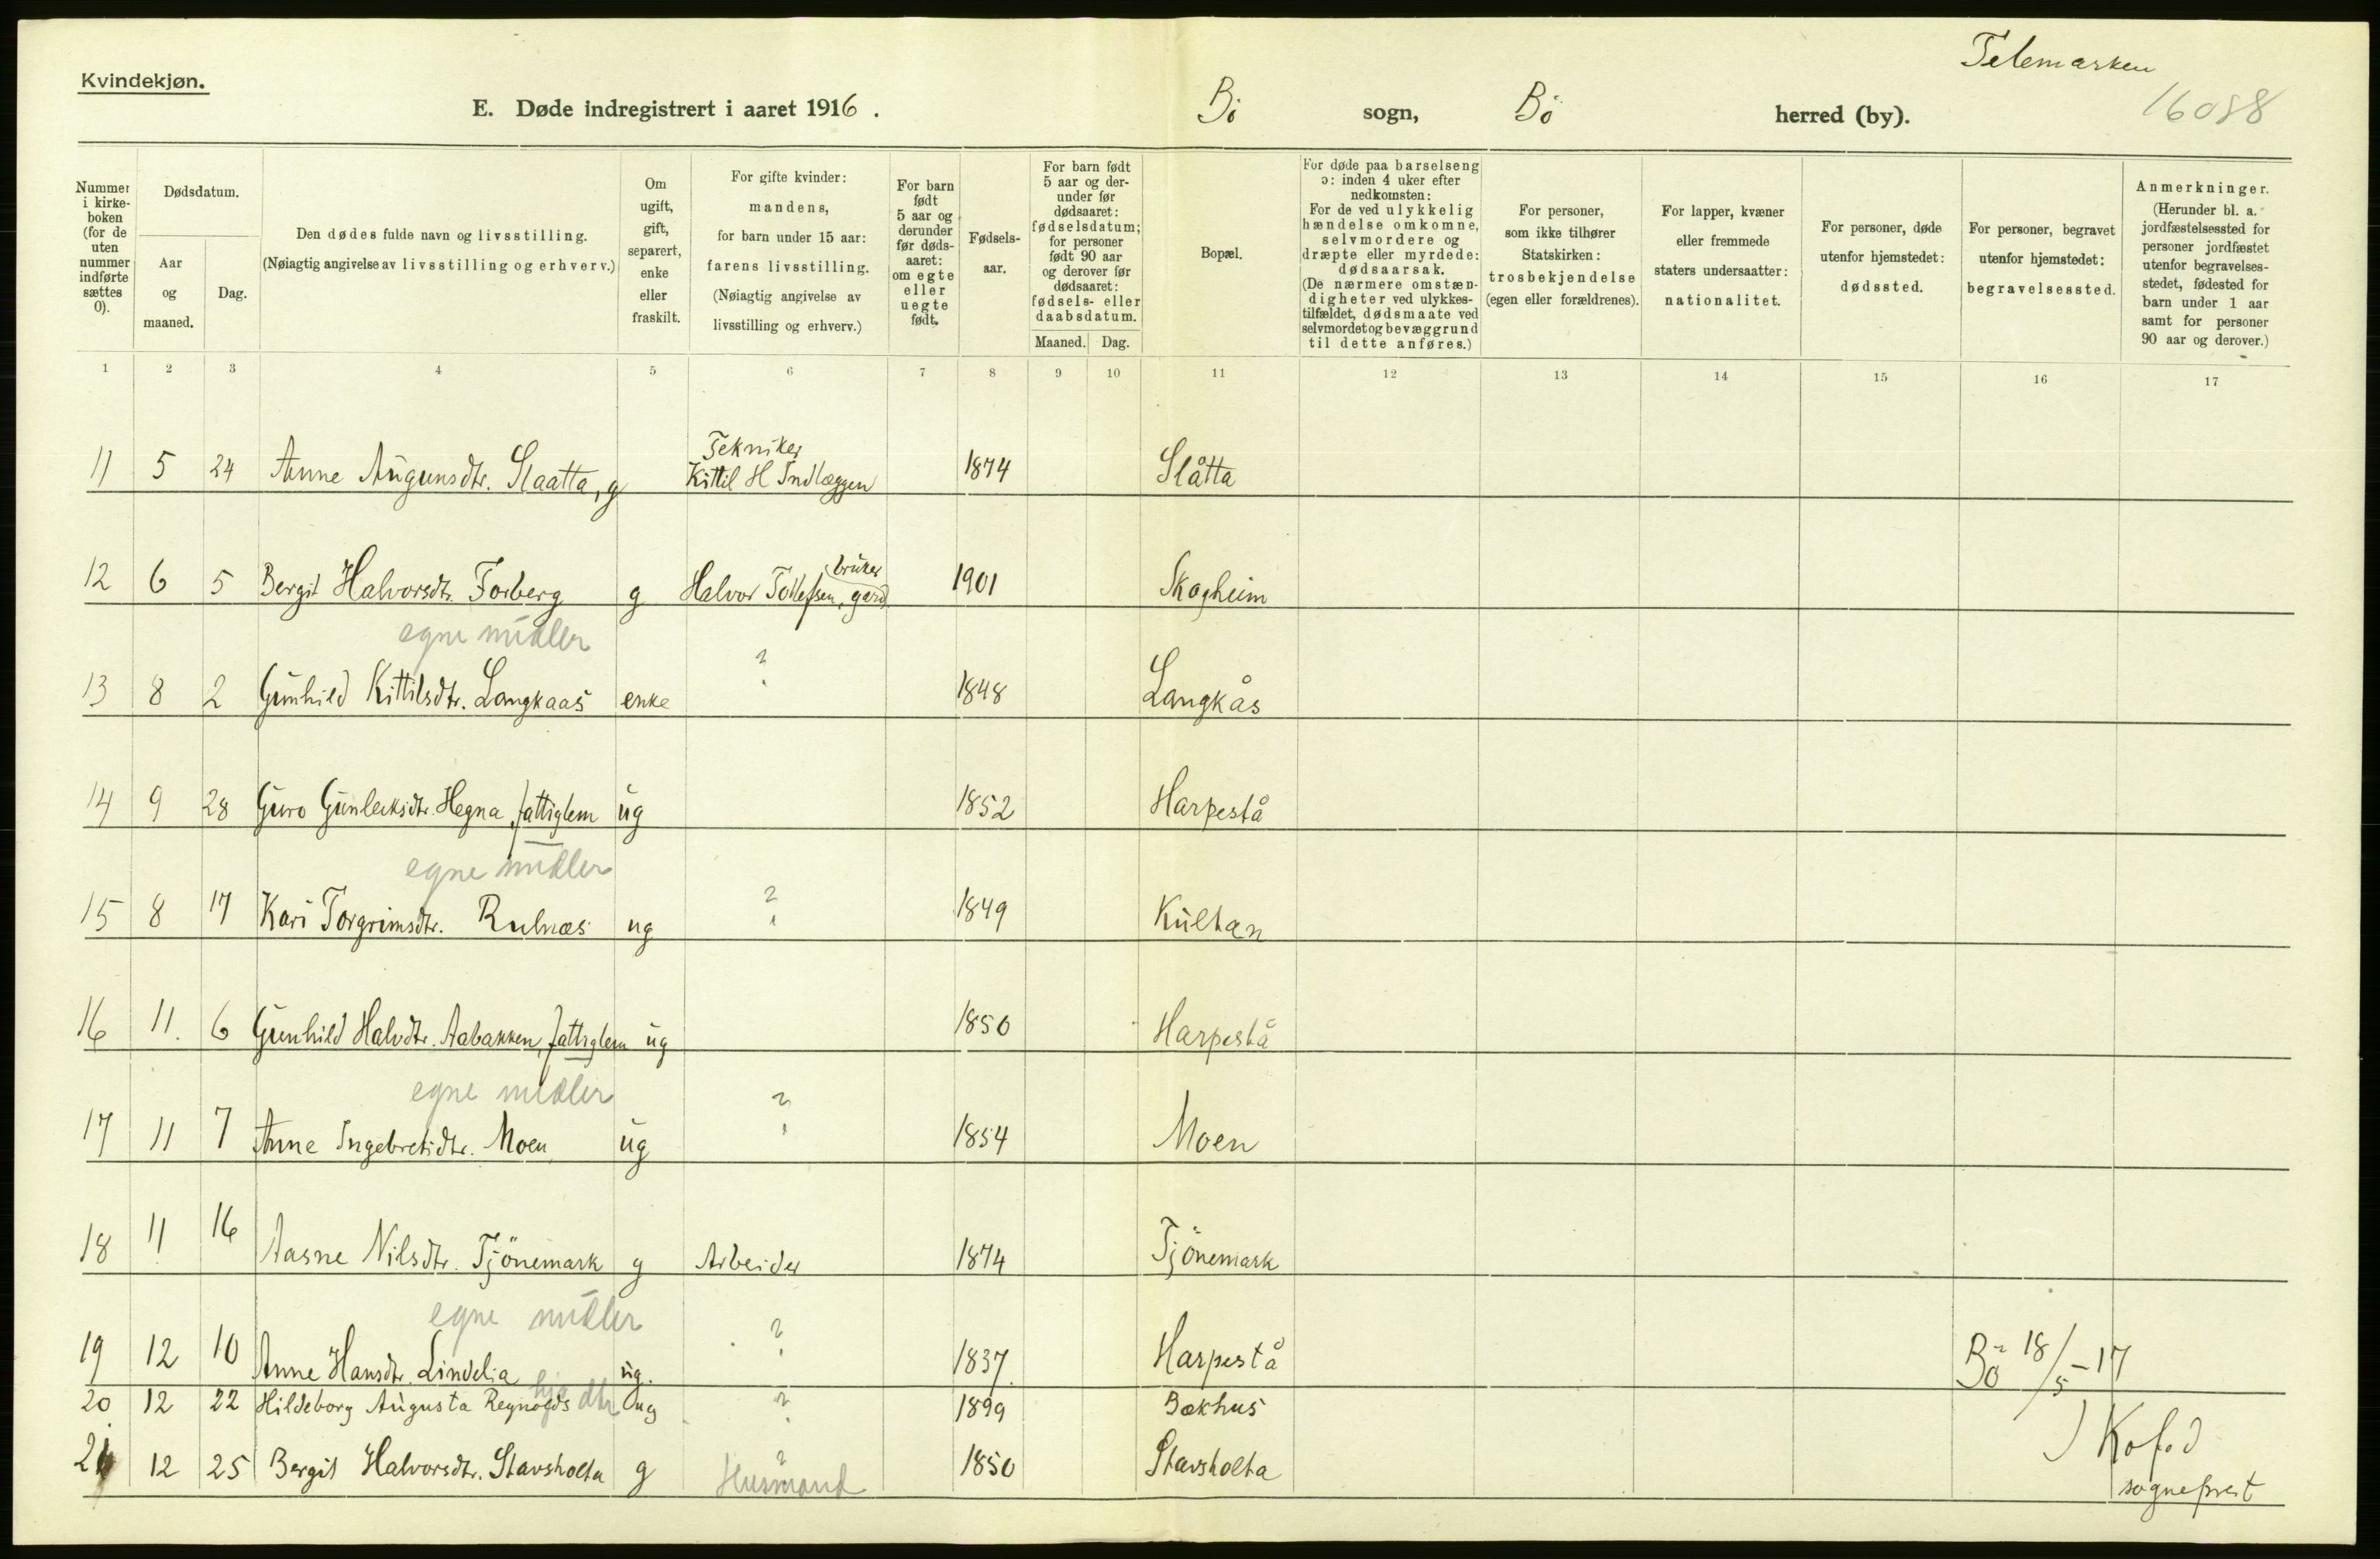 Telemarken
Kvindekjøn.
E. Døde indregistrert i aaret 1916. Bö sogn, Bö herred (by). 16088
Nummer i kirkeboken (for de uten nummer indførte sættes 0).
Dødsdatum.
Aar og maaned.
Dag.
Den dødes fulde navn og livsstilling.
(Nøiagtig angivelse av livsstilling og erhverv.)
Om ugift, gift, separert, enke eller fraskilt.
For gifte kvinder: mandens, for barn under 15 aar: farens livsstilling.
(Nøiagtig angivelse av livsstilling og erhverv.)
For barn født 5 aar og derunder før dødsaaret: om egte eller uegte født.
Fødselsaar.
For barn født 5 aar og derunder før dødsaaret: fødselsdatum; for personer født 90 aar og derover før dødsaaret: fødsels- eller daabsdatum.
Maaned. Dag.
Bopæl.
For døde paa barselseng ɔ: inden 4 uker efter nedkomsten:
For de ved ulykkelig hændelse omkomne, selvmordere og dræpte eller myrdede: dødsaarsak.
(De nærmere omstændigheter ved ulykkestilfældet, dødsmaate ved selvmordet og bevæggrund til dette anføres.)
For personer, som ikke tilhører Statskirken: trosbekjendelse (egen eller forældrenes).
For lapper, kvæner eller fremmede staters undersaatter: nationalitet.
For personer, døde utenfor hjemstedet: dødssted.
For personer, begravet utenfor hjemstedet: begravelsessted.
Anmerkninger.
(Herunder bl. a. jordfæstelsessted for personer jordfæstet utenfor begravelsesstedet, fødested for barn under 1 aar samt for personer 90 aar og derover.)
1 2 3 4 5 6 7 8 9 10 11 12 13 14 15 16 17
Tekniker
11 5 24 Anne Augunsdtr. Slaatta, g Kittil H Indlæggen 1874 Slåtta
bruker
12 6 5 Bergit Halvorsdtr. Forberg g Halvor Tollefsen, gard 1901 Skogheim
egne midler
13 8 2 Gunhild Kittilsdtr. Langkaas enke ? 1848 Langkås
14 9 28 Guro Gunleiksdtr. Hegna, fattiglem ug 1852 Harpestå
egne midler
15 8 17 Kari Torgrimsdtr. Rulnæs ug ? 1849 Kultan
16 11. 6 Gunhild Halvdtr. Aabakken, fattiglem ug 1850 Harpestå
egne midler
17 11 7 Anne Ingebretsdtr. Moen ug ? 1854 Moen
18 11 16 Aasne Nilsdtr. Tjönemark g Arbeider 1874 Tjönemark
egne midler
19 12 10 Anne Hansdtr. Lindelia ug. ? 1837 Harpestå Bö 18/5-17
20 12 22 Hildeborg Augusta dtr ug ? 1899 Bækhus
J Kofod
21 12 25 Bergit Halvorsdtr. Stavsholta g ? Husmand 1850 Stavsholta
sogneprest